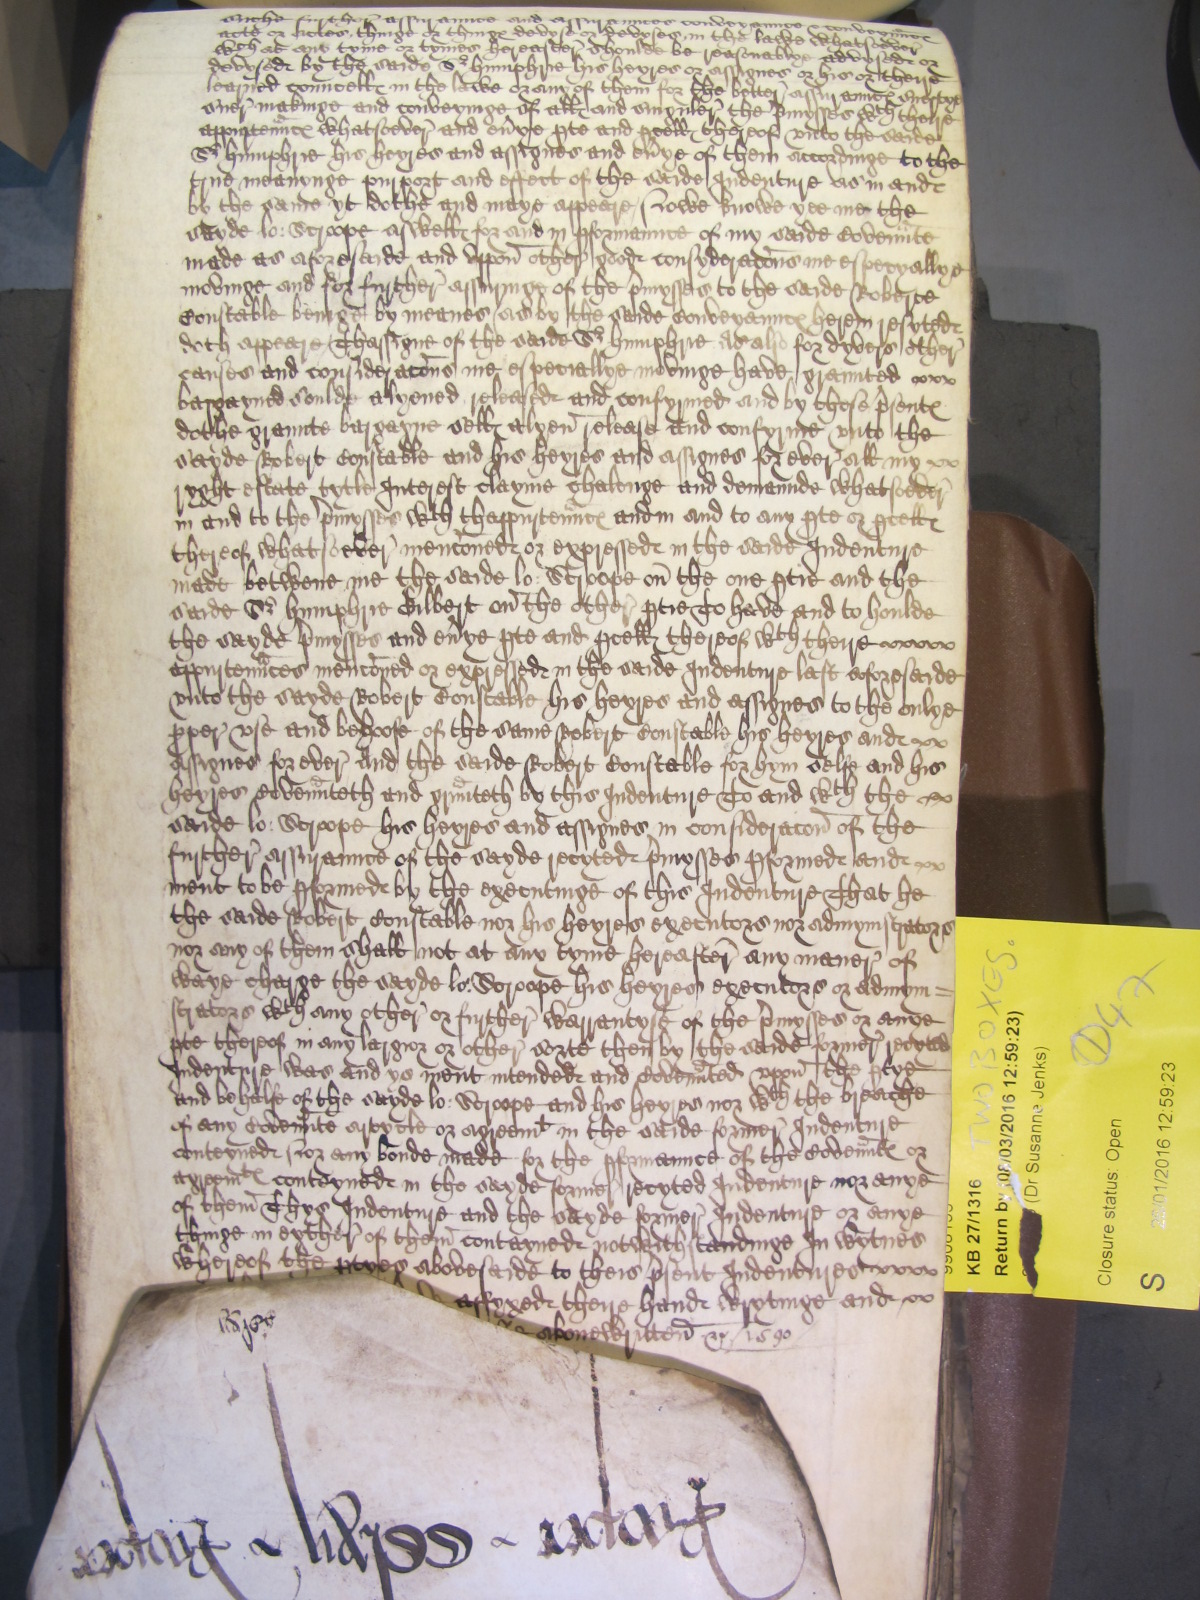 suche further assuraunce and assuraunces conveyaunce & conveyaunces
acte or actes thinge or thinge devyse or devyses in the lawe whatsoever
wch at any tyme or tymes hereafter shoulde be reasonablye advysed or
devysed by the saide Sr humphrie his heyres or assignes or his or theire
learned councell in the lawe or any of them for the better assuraunce
suer makinge and conveyinge of all and singuler the pmysses wth theire
appurtenncs whatsoever and evye pte and pcell thereof unto the saide
Sr humphrie his heyres and assignes and evye of them accordinge to the
true meanynge purport and effect of the saide Indenture as in and
by the same yt dothe and maye appeare / Nowe knowe yee me the
sayde lo: Scroope aswell for and in pformaunce of my saide Covennte
made as aforesaide and uppon other good consyderacons me especyallye
movinge and for further assuringe of the pmysses to the saide Roberte
Constable beinge by meanes as by the saide Conveyaunce herein resyted
doth appeare Thassigne of the saide Sr humphrie As also for dyvers other
causes and consideracons me especiallye movinge have graunted
bargayned soulde alyened released and confyrmed and by those psents
dothe graunte bargayne sell alyen release and confyrme unto the
sayde Robert Constable and his heyres and assignes for ever all my
ryght estate tytle Interest clayme chalenge and demaunde whatsoever
in and to the pmysses wth thappurtenncs and in and to any pte or pcell
thereof whatsoever menconed or expressed in the saide Indenture
made betwene me the saide lo: Scroope on the one ptie and the
saide Sr humphrie Gilbert on the other ptie To have and to houlde
the sayde pmysses and evye pte and pcell thereof wth theire
appurtennces menconed or expressed in the saide Indenture last aforesaide
unto the sayde Robert Constable his heyres and assignes to the onlye
pper use and behoofe of the same Robert Constable his heyres and
assignes for ever And the saide Robert Constable for hym selfe and his
heyres Covennteth and grnnteth by this Indenture To and wth the
saide lo: Scroope his heyres and assignes in consideracon of the
further assuraunce of the sayde recyted pmysses pformed and
ment to be pformed by the executinge of this Indenture That he
the saide Robert Constable nor his heyres executors nor admynistrators
nor any of them shall not at any tyme hereafter any maner of
waye charge the sayde lo: Scroope his heyres executors or admyni=
strators wth any other or further warrantyse of the pmysses or anye
pte thereof in any larger or other sorte then by the saide former recyted
Indenture was and ys ment intended and Covennted upon the ptye
and behalfe of the sayde lo: Scroope and his heyres nor wth the breache
of any Covennte artycle or agreemt in the saide former Indenture
conteyned Nor any bonde made for the pformaunce of the Covennts or
agreemts conteyned in the sayde former recyted Indenture nor anye
of them Thys Indenture and the sayde former Indenture or anye
thinge in eyther of them contayned notwithstandinge In wytnes
whereof the ptyes abovesaide to theis psent Indentures
affyxed theire hand wrytinge and
abovewritten 1590
KB 27/1316 TWO BOXES.
Return by 08/03/2016 12:59:23)
(Dr Susanne Jenks)
Closure status: Open
S 28/01/2016 12:59:23